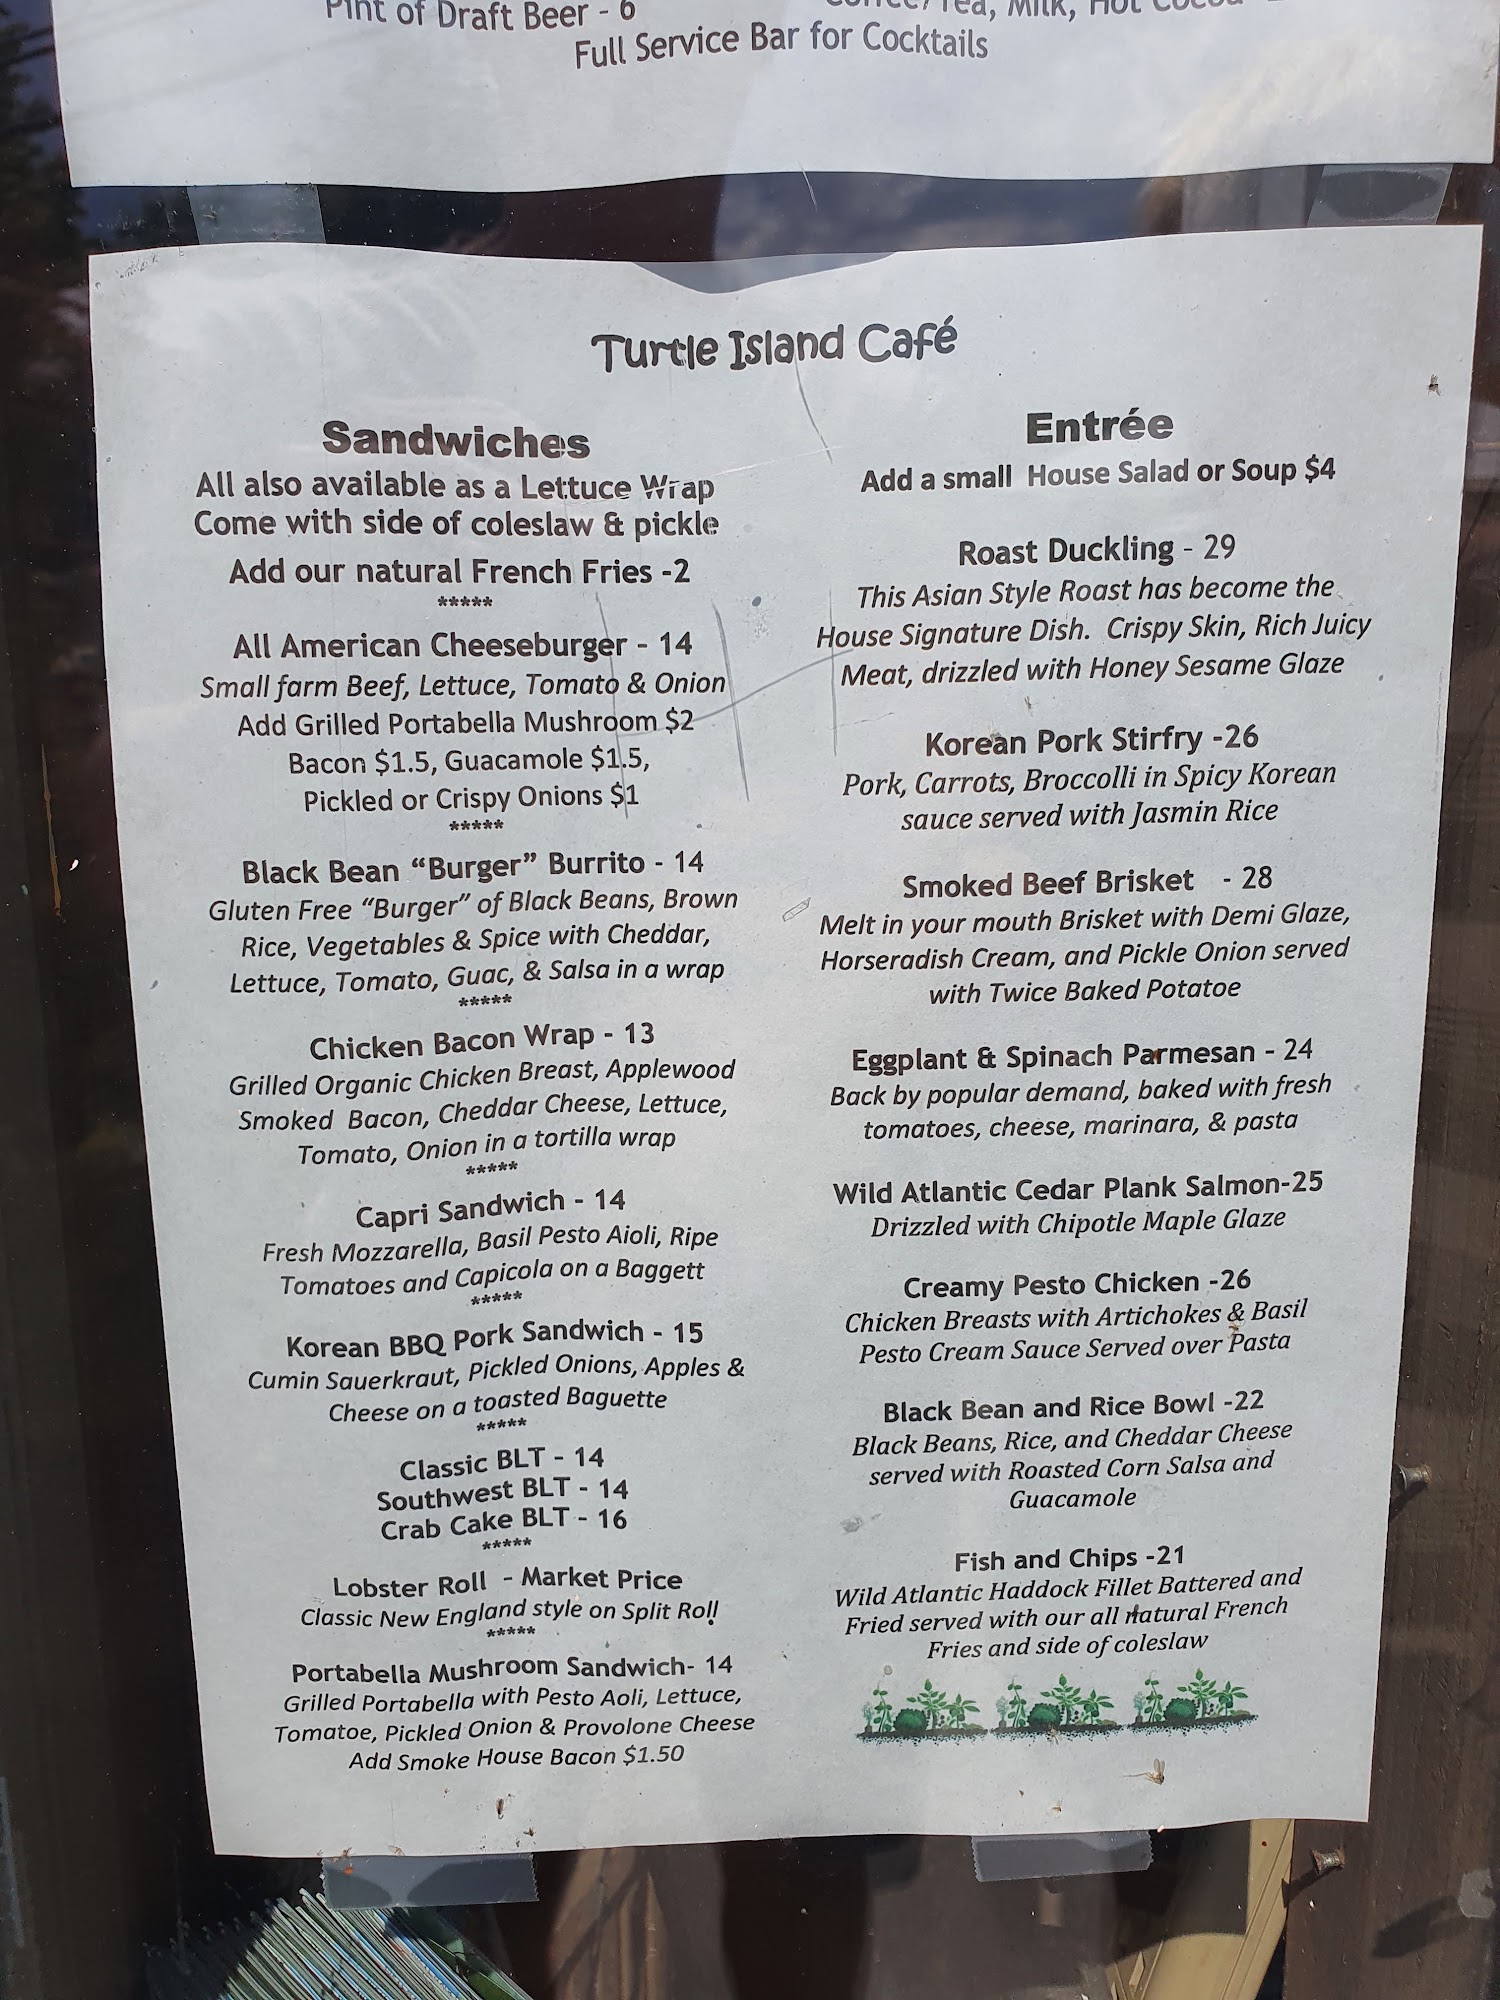 Pint of Draft Beer - 6
Coffee/Tea, Milk, Hot Cocoa
Full Service Bar for Cocktails
Turtle Island Café
Sandwiches
All also available as a Lettuce Wrap
Come with side of coleslaw & pickle
Add our natural French Fries -2
*****
All American Cheeseburger - 14
Small farm Beef, Lettuce, Tomato & Onion
Add Grilled Portabella Mushroom $2
Bacon $1.5, Guacamole $1.5,
Pickled or Crispy Onions $1
*****
Black Bean “Burger” Burrito - 14
Gluten Free “Burger” of Black Beans, Brown
Rice, Vegetables & Spice with Cheddar,
Lettuce, Tomato, Guac, & Salsa in a wrap
*****
Chicken Bacon Wrap - 13
Grilled Organic Chicken Breast, Applewood
Smoked Bacon, Cheddar Cheese, Lettuce,
Tomato, Onion in a tortilla wrap
*****
Capri Sandwich - 14
Fresh Mozzarella, Basil Pesto Aioli, Ripe
Tomatoes and Capicola on a Baggett
*****
Korean BBQ Pork Sandwich - 15
Cumin Sauerkraut, Pickled Onions, Apples &
Cheese on a toasted Baguette
*****
Classic BLT - 14
Southwest BLT - 14
Crab Cake BLT - 16
*****
Lobster Roll - Market Price
Classic New England style on Split Roll
*****
Portabella Mushroom Sandwich- 14
Grilled Portabella with Pesto Aoli, Lettuce,
Tomatoe, Pickled Onion & Provolone Cheese
Add Smoke House Bacon $1.50
Entrée
Add a small House Salad or Soup $4
Roast Duckling - 29
This Asian Style Roast has become the
House Signature Dish. Crispy Skin, Rich Juicy
Meat, drizzled with Honey Sesame Glaze
Korean Pork Stirfry -26
Pork, Carrots, Broccolli in Spicy Korean
sauce served with Jasmin Rice
Smoked Beef Brisket - 28
Melt in your mouth Brisket with Demi Glaze,
Horseradish Cream, and Pickle Onion served
with Twice Baked Potatoe
Eggplant & Spinach Parmesan - 24
Back by popular demand, baked with fresh
tomatoes, cheese, marinara, & pasta
Wild Atlantic Cedar Plank Salmon-25
Drizzled with Chipotle Maple Glaze
Creamy Pesto Chicken -26
Chicken Breasts with Artichokes & Basil
Pesto Cream Sauce Served over Pasta
Black Bean and Rice Bowl -22
Black Beans, Rice, and Cheddar Cheese
served with Roasted Corn Salsa and
Guacamole
Fish and Chips -21
Wild Atlantic Haddock Fillet Battered and
Fried served with our all natural French
Fries and side of coleslaw